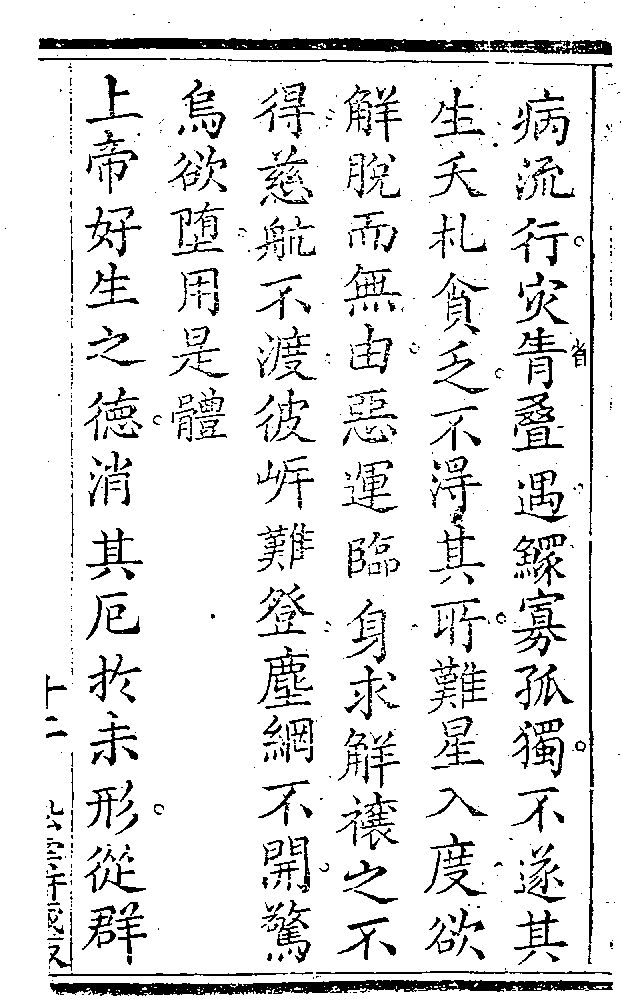 病流行灾眚叠遇鰥寡孤獨不遂其
省
生夭札貧乏不得其所難星入度欲
解脫而無由惡運臨身求解禳之不
得慈航不渡彼岍難登塵網不開驚
烏欲墮用是體
上帝好生之德消其厄於未形從群
十二